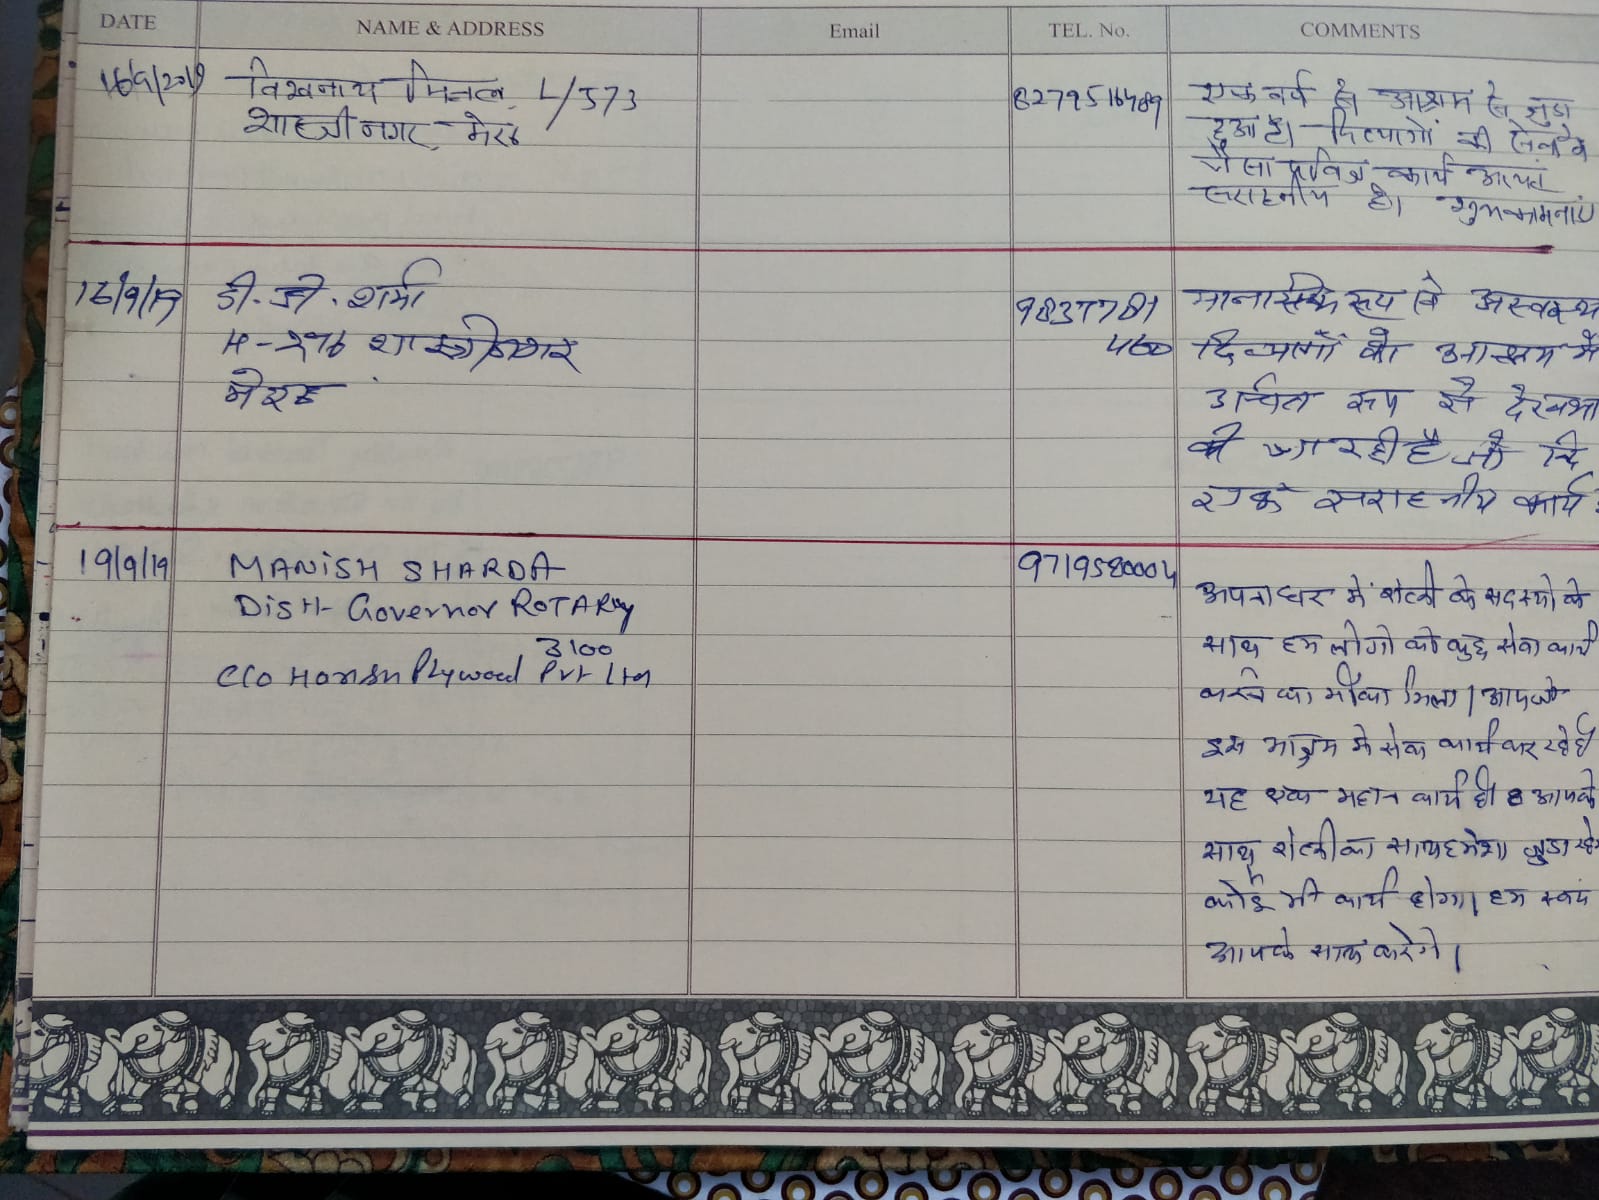 DATE NAME & ADDRESS Email TEL. No. COMMENTS
16/9/2019 विश्वनाथ मित्तल L/573 8279516489 एक वर्ष से आश्रम से जुड़ा
शास्त्रीनगर, मेरठ हुआ हूं। दिव्यांगों की सेवा
जैसा पवित्र कार्य अत्यंत
सराहनीय है। शुभकामनाएं
16/9/19 डी. जी. शर्मा मानसिक रूप से अस्वस्थ
शास्त्रीनगर 460 दिव्यांगों की आश्रम में
मेरठ उचित रूप से देखभा
की जा रही है जो कि
एक सराहनीय कार्य
19/9/19 MANISH SHARDA 9719580004
Distt Governor ROTARY अपना घर में रोटरी के सदस्यो के
3100 साथ हम लोगो को कुछ सेवा कार्य
C/O Plywood Pvt Ltd करने का मौका मिला। आपजो
इस आश्रम मे सेवा कार्य कर रहे है
यह एक महान कार्य है। आपके
साथ रोटरी का साथ हमेशा जुड़ा रहे
कोई भी कार्य होगा। हम स्वयं
आपके साथ करेगे।